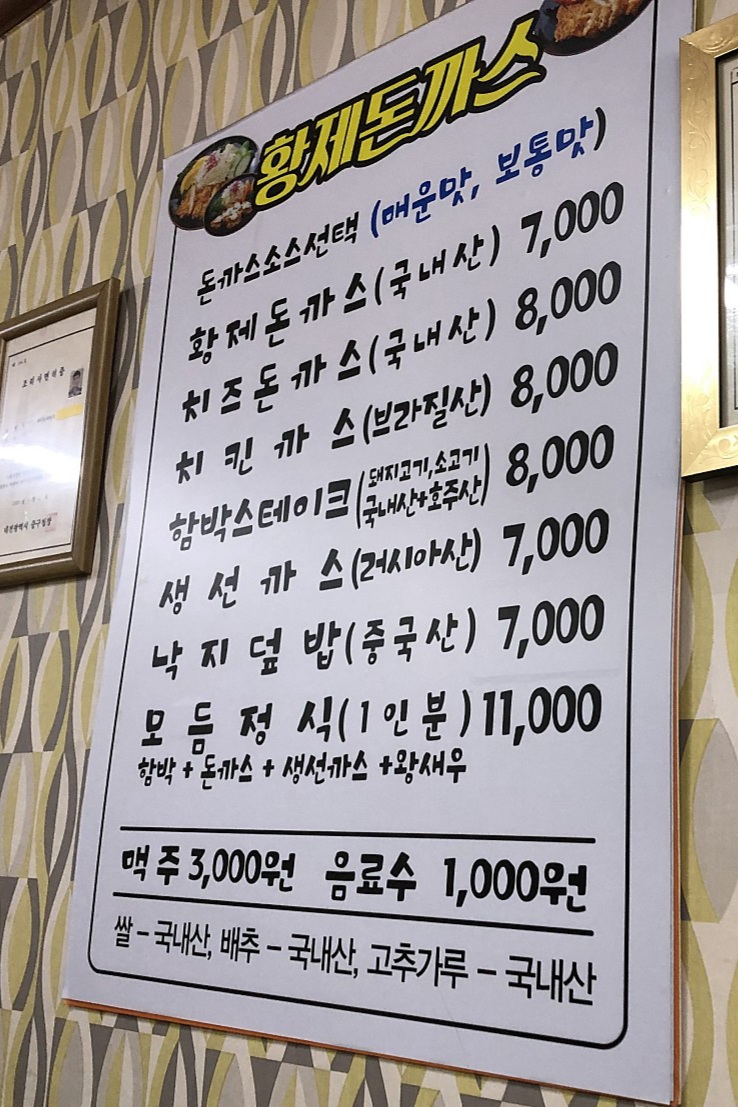 황제돈까스
돈까스소스선택 (매운맛, 보통맛)
황제돈까스(국내산) 7,000
치즈돈까스(국내산) 8,000
치킨까스(브라질산) 8,000
함박스테이크(돼지고기,소고기 국내산+호주산) 8,000
생선까스(러시아산) 7,000
낙지덮밥(중국산) 7,000
모듬정식(1인분) 11,000
함박 + 돈까스 + 생선까스 +왕새우
맥주 3,000원 음료수 1,000원
쌀 - 국내산, 배추 - 국내산, 고추가루 - 국내산
조리사면허증
대전광역시 중구청장